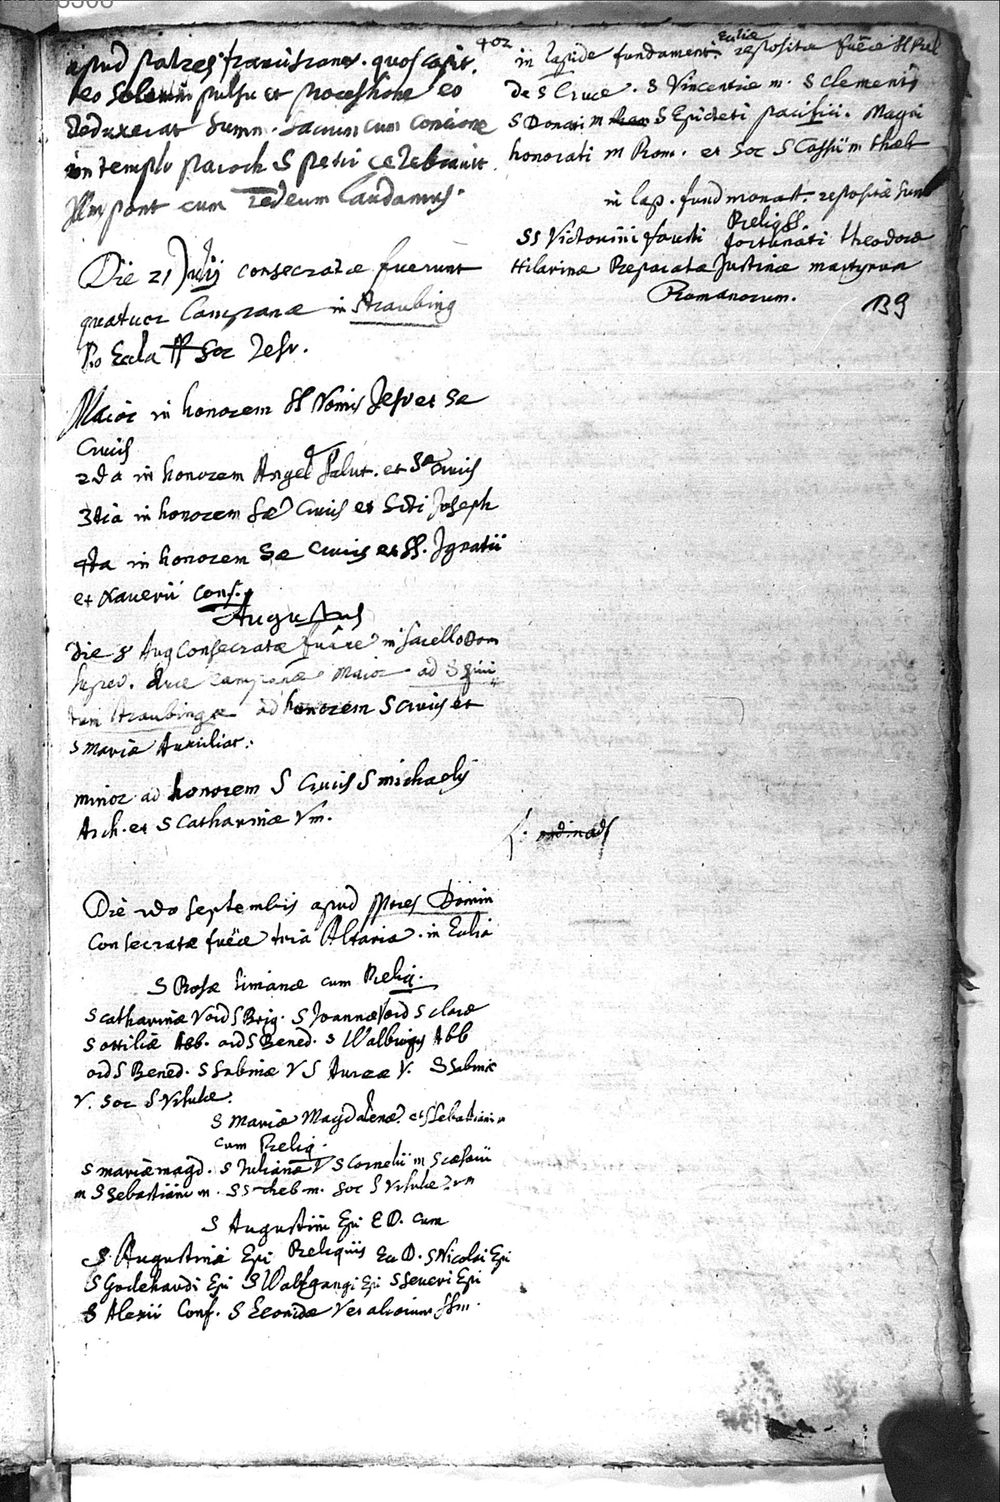 402
apud patres franciscanos. quos
eo solemni pulsu et processione eo
deduxerat summ. sacrum cum concione
in templo paroch S petri celebravit
pont cum Te deum laudamus.
Die 21 Julij consecratae fuerunt
quatuor Campanae in Straubing
Pro Eccla PP Soc Jesu.
Maior in honorem SS Nomis Jesu et Sae
Crucis
2da in honorem Angel Salut. et Sae Crucis
3tia in honorem Sae Crucis et Scti Joseph
4ta in honorem Sae Crucis et SS. Ignatii
et Xaverii conf.
Augustus
die 8 Aug Consecratae fuere in sacello Dom
duae campanae Maior ad S Spiri
tum Straubingae ad honorem S Crucis et
S Mariae Auxiliat.
minor ad honorem S Crucis S Michaelis
Arch. et S Catharinae V m.
Die 2do Septembris apud PPtres Domin
Consecratae fuere tria Altaria. in Eccliâ
S Rosae Limanae cum Reliq.
S Catharinae V ord S Brig. S Joannae V ord S Clarae
S Ottiliae Abb. ord S Bened. S Walburgis Abb
ord S Bened. S Sabinae V S Aureae V. S Sabinae
V. Soc S Ursulae.
S Mariae Magdalenae et S Sebastiani m
cum Reliq.
S Mariae Magd. S Julianae V S Cornelii m S Caesarii
m S Sebastiani m. SS Theb m. Soc S Ursulae V m
S Augustini Epi E D. cum
S. Augustini Epi Reliquiis Ec D. S Nicolai Epi
S Godehardi Epi S Wolfgangi Epi S Severi Epi
S Alexii Conf. S Leonidae V et aliorum SSm.
in lapide fundament. Eccliae reposita fuere SS Rel
De S Cruce. S Vincentiae m. S Clementis
S Donati m S Epicteti pacifici. Magni
honorati m Rom. et Soc S Cassii m Theb
in lap. fund monast. repositae sunt
Reliq SS.
SS Victorini fausti fortunati theodorae
Hilarinae Reparatae Justinae martyrum
Romanorum.
139